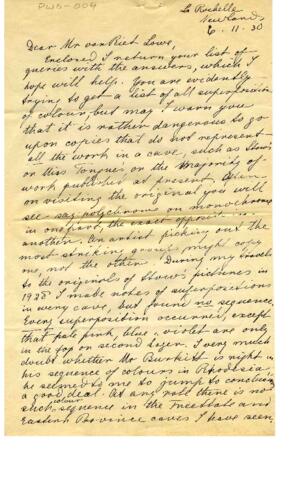 PWS-004
La Rochelle
Newlands
6.11.30
Dear Mr van Riet Lowe,
Enclosed I return your list of
queries with the answers, which I
hope will help. You are evidently
trying to get a list of all superposition
of colour, but may I warn you
that it is rather dangerous to go
upon copies that do not represent
all the work in a cave, such as Stow's
or Miss Tongue's or the majority of
work published at present. Often
on visiting the original you will
see say polychrome on monochrome
in one part, the exact opposite in
another. An artist picking out the
most striking group might copy
one, not the other. During my travels
to the originals of Stow's pictures in
1928 I made notes of superpositions
in every cave, but found no sequence.
Every superposition occurred, except
that pale pink, blue, violet are only
in the top or second layer. I very much
doubt whether Mr Burkitt is right in
his sequence of colours in Rhodesia;
he seemed to me to jump to conclusions
a good deal. At any rate there is no
such colour sequence in the Free State and
Eastern Province caves I have seen.